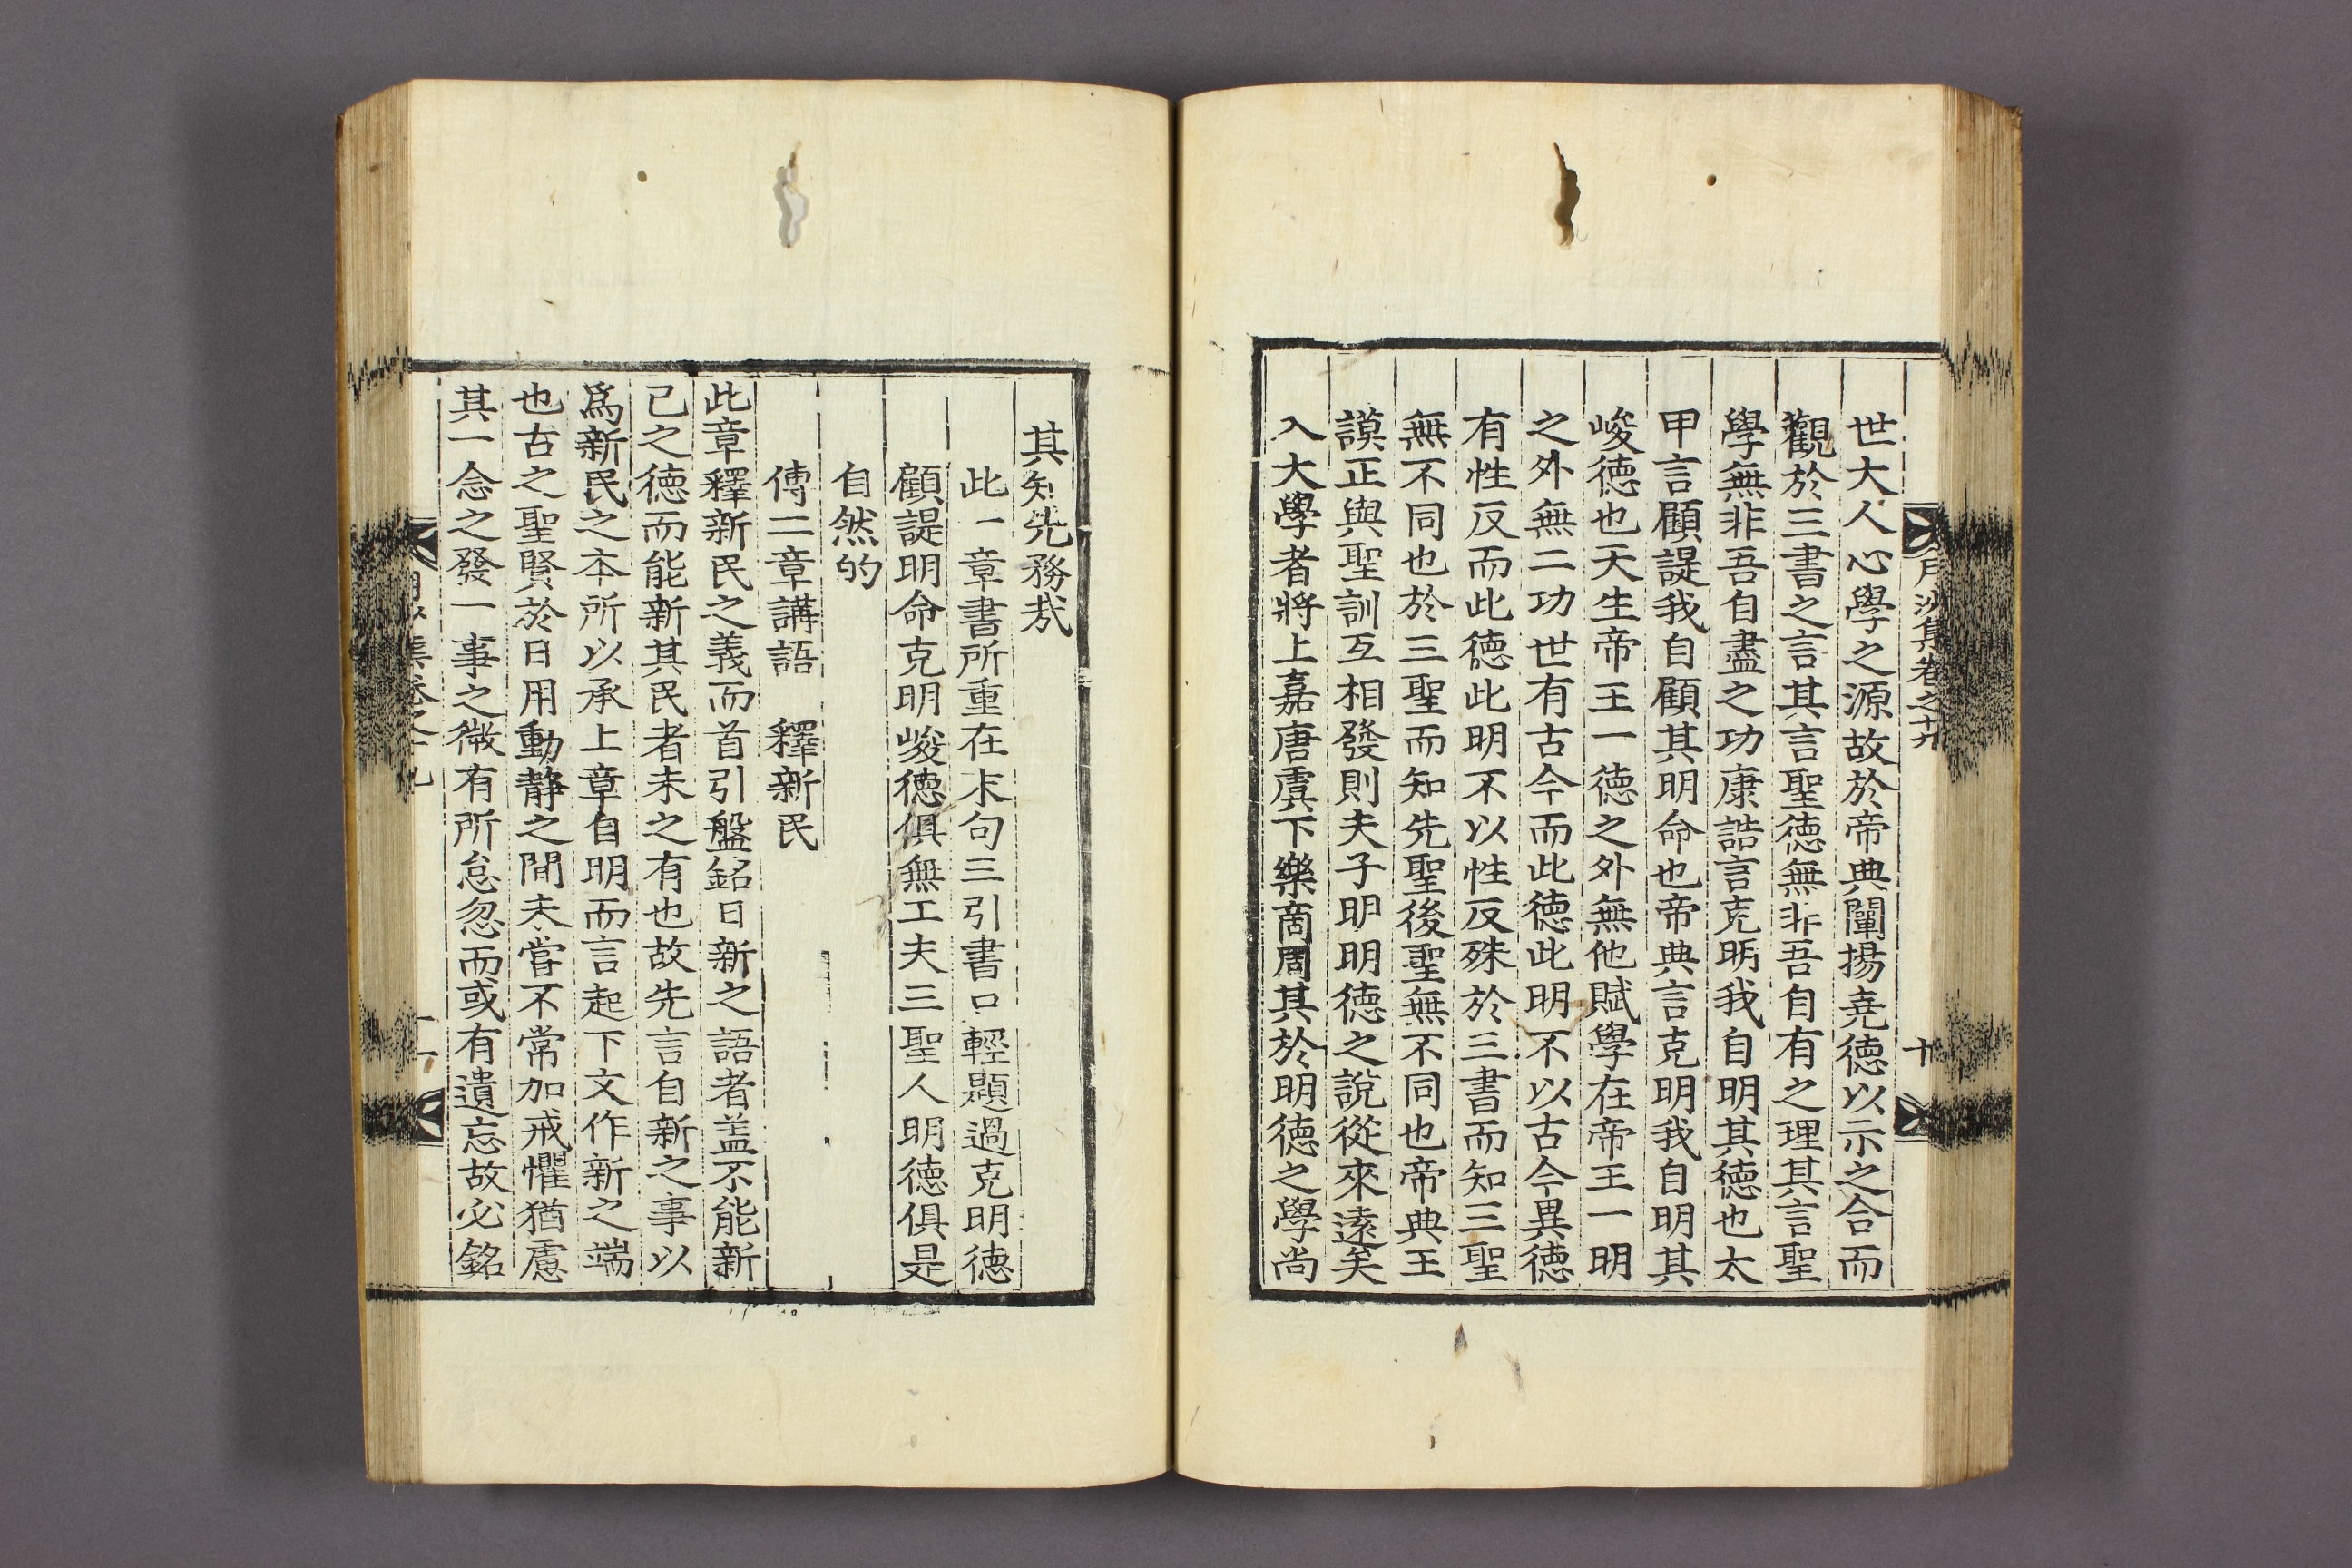 月沙集卷之十九
十
世大人心學之源故於帝典闡揚堯德以示之合而
觀於三書之言其言聖德無非吾自有之理其言聖
學無非吾自盡之功康誥言克明我自明其德也太
甲言顧諟我自顧其明命也帝典言克明我自明其
峻德也天生帝王一德之外無他賦學在帝王一明
之外無二功世有古今而此德此明不以古今異德
有性反而此德此明不以性反殊於三書而知三聖
無不同也於三聖而知先聖後聖無不同也帝典王
謨正與聖訓互相發則夫子明明德之說從來遠矣
入大學者將上嘉唐虞下樂商周其於明德之學尚
其知先務哉
此一章書所重在末句三引書口輕題過克明德
顧諟明命克明峻德俱無工夫三聖人明德俱是
自然的
傳二章講語 釋新民
此章釋新民之義而首引盤銘日新之語者盖不能新
己之德而能新其民者未之有也故先言自新之事以
爲新民之本所以承上章自明而言起下文作新之端
也古之聖賢於日用動靜之間未嘗不常加戒懼猶慮
其一念之發一事之微有所怠忽而或有遺忘故必銘